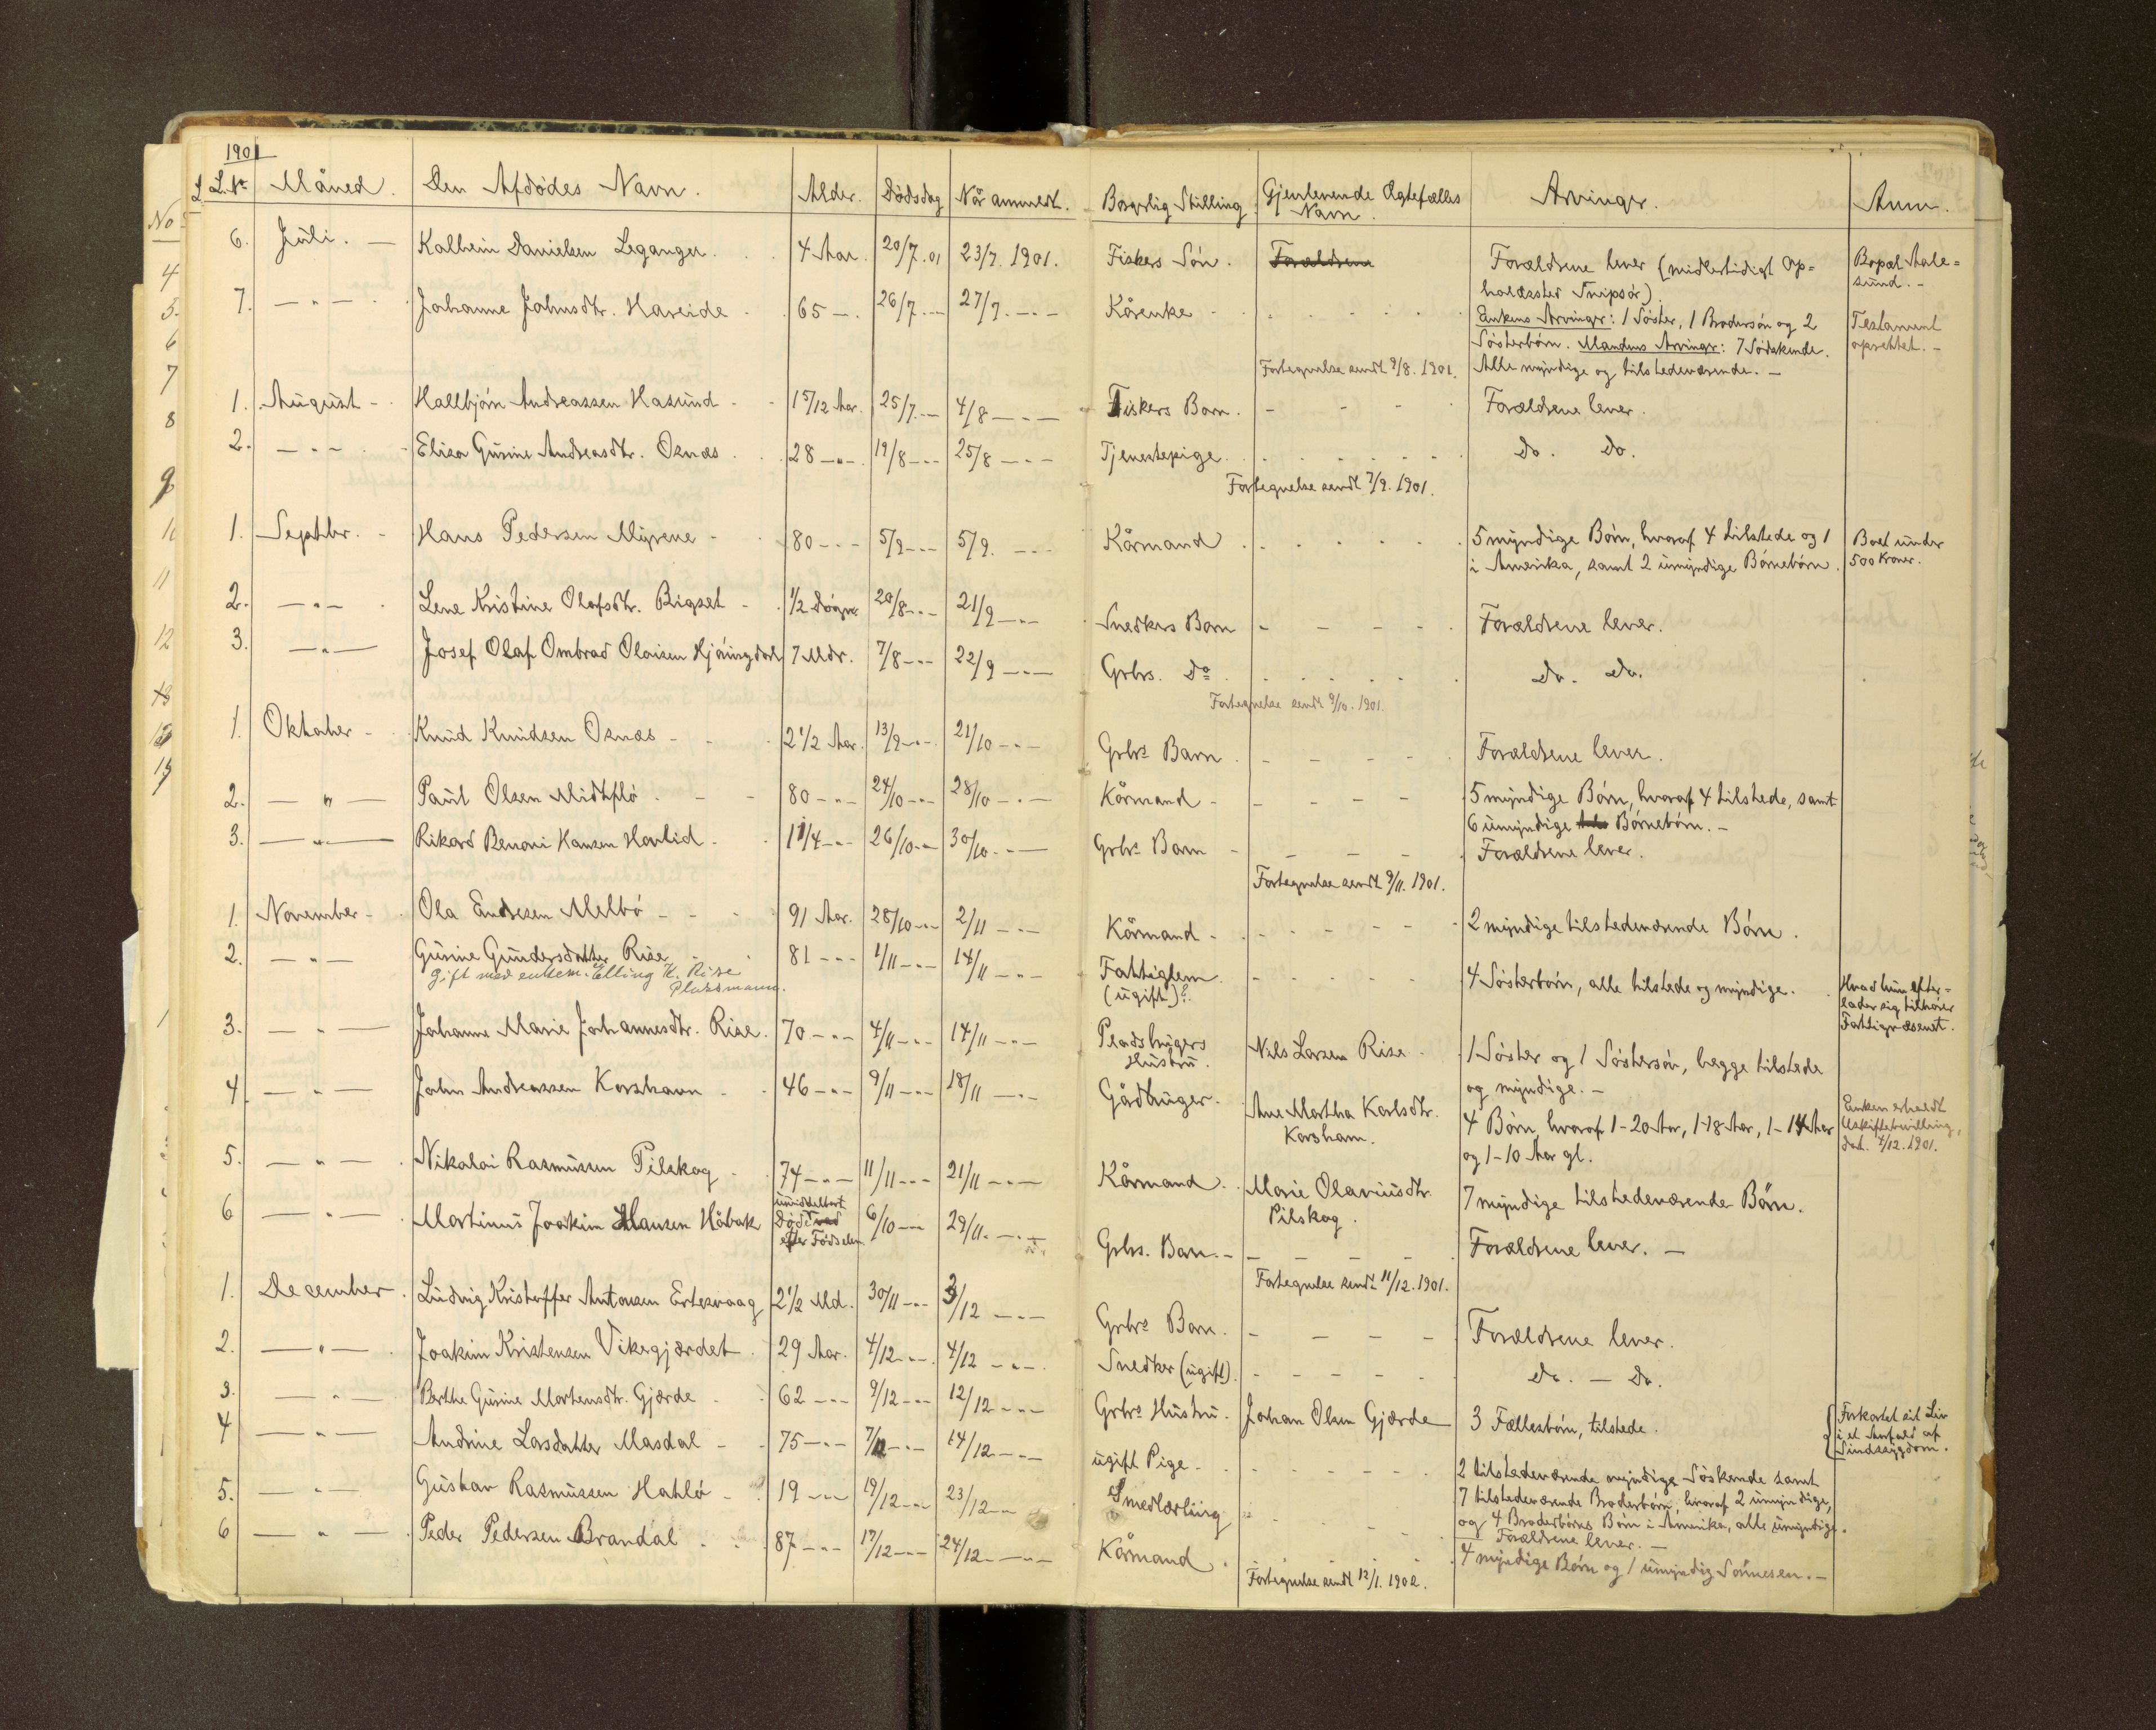 1901
L.Nr Måned. Den Afdødes Navn. Alder. Dødsdag Når anmeldt. Borgerlig Stilling Gjenlevende Ægtefælles Navn. Arvinger. Anm.
6. Juli. — Kalhein Danielsen Leganger. 4 Aar. 20/7.01 23/7. 1901. Fiskers Søn. Forældrene Forældrene lever (midlertidigt Op=
holdssted Snipsør). Bopæl Aale=
sund. -
7. — " — Johanne Johnsdtr. Hareide 65 — 26/7. — 27/7. — Kårenke Enkens Arvinger: 1 Søster, 1 Brodersøn og 2
Søsterbørn. Mandens Arvinger: 7 Sødskende.
Alle myndige og tilstedeværende. — Testament
oprettet. -
Fortegnelse sendt 9/8. 1901.
1. August - Hallbjørn Andreassen Hasund 1 5/12 Aar. 25/7. — 4/8 — Fiskers Barn. Forældrene lever.
2. — " — Elisa Gurine Andreasdtr. Osnæs 28 — " — 19/8 — 25/8 — Tjenestepige. do. do.
Fortegnelse sendt 7/9. 1901.
1. Septbr. - Hans Pedersen Myrene 80 — 5/9 — 5/9. — Kårmand 5 myndige Børn, hvoraf 4 tilstede og 1
i Amerika, samt 2 umyndige Børnebørn. Boet under
500 Kroner.
2. — " — Lene Kristine Olafsdtr. Bigset 1/2 Døgn 20/8 — 21/9 — Snedkers Barn Forældrene lever.
3. — " — Josef Olaf Ombrad Olaisen Hjøringdal 7 Mdr. 7/8 — 22/9 — Grbrs. Do do. do.
Fortegnelse sendt 9/10. 1901.
1. Oktober - Knud Knudsen Osnæs 2 1/2 Aar. 13/9 — 21/10 — Grbrs Barn Forældrene lever.
2. — " — Paul Olsen Midtflø 80 — " — 24/10 — 28/10 — Kårmand 5 myndige Børn, hvoraf 4 tilstede, samt
6 umyndige Børnebørn. —
3. — " — Rikard Benoni Hansen Hovlid 1 1/4 — 26/10 — 30/10 — Grbrs Barn Forældrene lever.
Fortegnelse sendt 9/11. 1901.
1. November - Ola Endresen Melbø 91 Aar. 28/10 — 2/11 — Kårmand 2 myndige tilstedeværende Børn.
2. — " — Gurine Gundersdatter Rise 81 — 1/11 — 14/11 — Fattiglem
(ugift)? 4 Søsterbørn, alle tilstede og myndige. Hvad hun efter=
lader sig tilhører
Fattigvæsenet.
Gift med enkem. Elling K. Rise
Plassmann.
3. — " — Johanne Marie Johannesdtr. Rise. 70 — 4/11 — 14/11 — Pladsbrugers
Hustru. Nils Larsen Rise 1 Søster og 1 Søstersøn, begge tilstede
og myndige. —
4. — " — John Andreassen Korshavn 46 — 9/11 — 18/11 — Gårdbruger. Ane Martha Karlsdtr.
Korshavn. 4 Børn, hvoraf 1-20 Aar, 1-18 Aar, 1-14 Aar
og 1-10 Aar gl. Enken erholdt
Uskiftebevilling,
dat. 4/12. 1901.
5. — " — Nikolai Rasmussen Pilskog 74 — 11/11 — 21/11 — Kårmand Marie Olaviusdtr.
Pilskog. 7 myndige tilstedeværende Børn.
6 — " — Martinus Joakim Hansen Håbak umiddelbart
Døde ved
efter Fødselen 6/10 — 29/11. — Grbrs. Barn. Forældrene lever. —
Fortegnelse sendt 11/12. 1901.
1. December. Ludvig Kristoffer Antonsen Ertesvaag 2 1/2 Md. 30/11 — 3/12 — Grbrs Barn. Forældrene lever.
2. — " — Joakim Kristensen Vikegjærdet 29 Aar. 4/12 — 4/12 — Snedker (ugift). do. — do.
3. — " — Berthe Gurine Mortensdtr. Gjerde 62 — 9/12 — 12/12 — Grbrs Hustru. Johan Olsen Gjærde 3 Fællesbørn, tilstede. Forkortet sit Liv
i et Anfald af
Sindssygdom.
4 — " — Andrine Larsdatter Masdal 75 — 7/12 — 14/12 — ugift Pige 2 tilstedeværende myndige Søskende samt
7 tilstedeværende Broderbørn, hvoraf 2 umyndige,
og 4 Broderbørns Børn i Amerika, alle umyndige.
5. — " — Gustav Rasmussen Hatlø 19 — 19/12 — 23/12 — Smedlærling Forældrene lever. —
6 — " — Peder Pedersen Brandal 87 — 17/12 — 24/12 — Kårmand 4 myndige Børn og 1 umyndig Sønnesøn. —
Fortegnelse sendt 12/1. 1902.